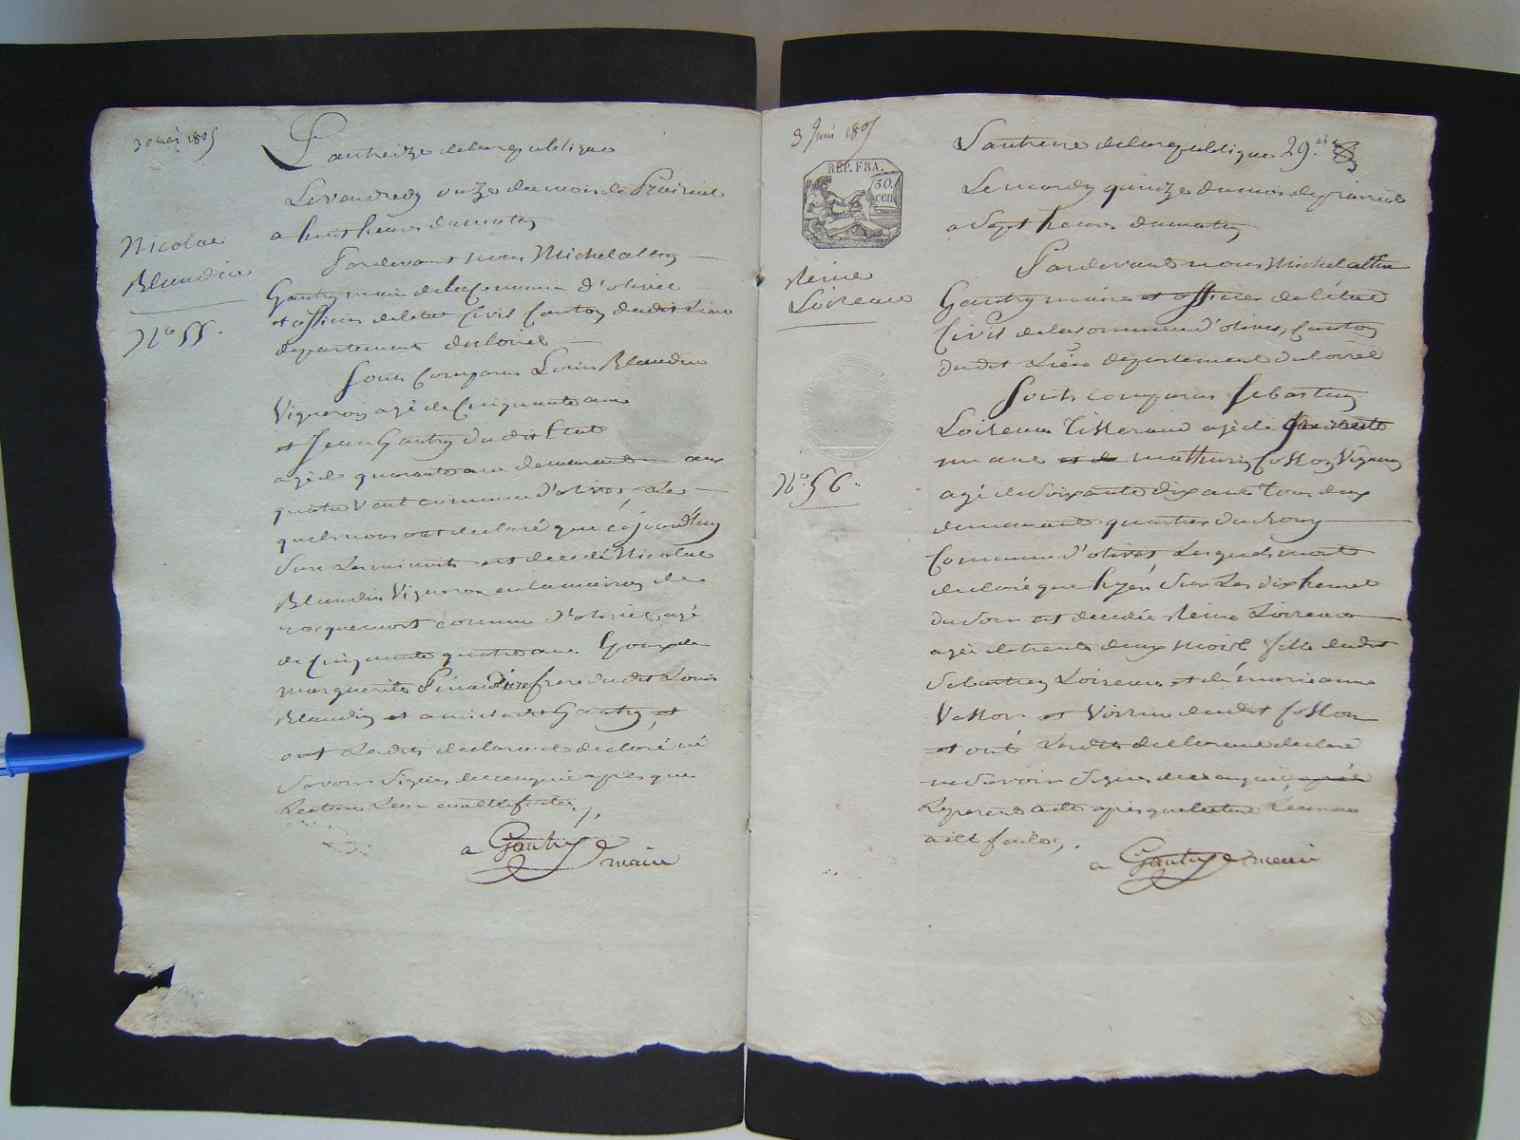 30 mai 1805
L'an treize de la republique
Le vendredy onze du mois de Prairial
a huit heures du matin
Nicolas
Blaudin
No 55.
Pardevant nous Michel alexy
Gautry maire de la Commune d'olivet
et officier de l'etat Civil Canton dudit Lieu
departement du loiret
Sont Comparus Louis Blaudin
Vigneron agé de Cinquante ans
et Jean Gautry du dit Etat
agé de quarante ans demeurant aux
quatre Vent commune d'olivet Les
quels nous ont declaré que cejourd'huy
Sur Les minuit est decedé Nicolas
Blaudin Vigneron en la maison de
commune d'olivet agé
de Cinquante quatre ans Epoux de
marguerite frere dudit Louis
Blaudin et ami dudit Gautry et
ont Lesdits declarants declaré né
Savoir Signer de ce enquis apres que
Lecture Leur en a été faite
a Gautry maire
3 Juin 1805
REP. FRA.
50.
cen.
L'an treize de la republique 29.
Le mardy quinze du mois de prairial
a Sept heures du matin
Reine
Loiseau
No 56.
Pardevant nous Michel alexy
Gautry maire et officier de l'état
Civil de la commune d'olivet, Canton
du dit Lieu departement du loiret
Sont comparus Sebastien
Loiseau Tisserand agé de
un ans et de mathurin Vigneron
agé de Soixante dix ans tous deux
demeurant quartier du
Commune d'olivet Lesquels m'ont
declaré que hyer Sur Les dix heures
du Soir est decedée Reine Loiseau
agée de trente deux mois fille dudit
Sebastien Loiseau et de marianne
et Voisine dudit
et ont Lesdits declarans declaré
ne Savoir Signer de ce enquis
Le present acte apres que lecture
a été faite
a Gautry maire